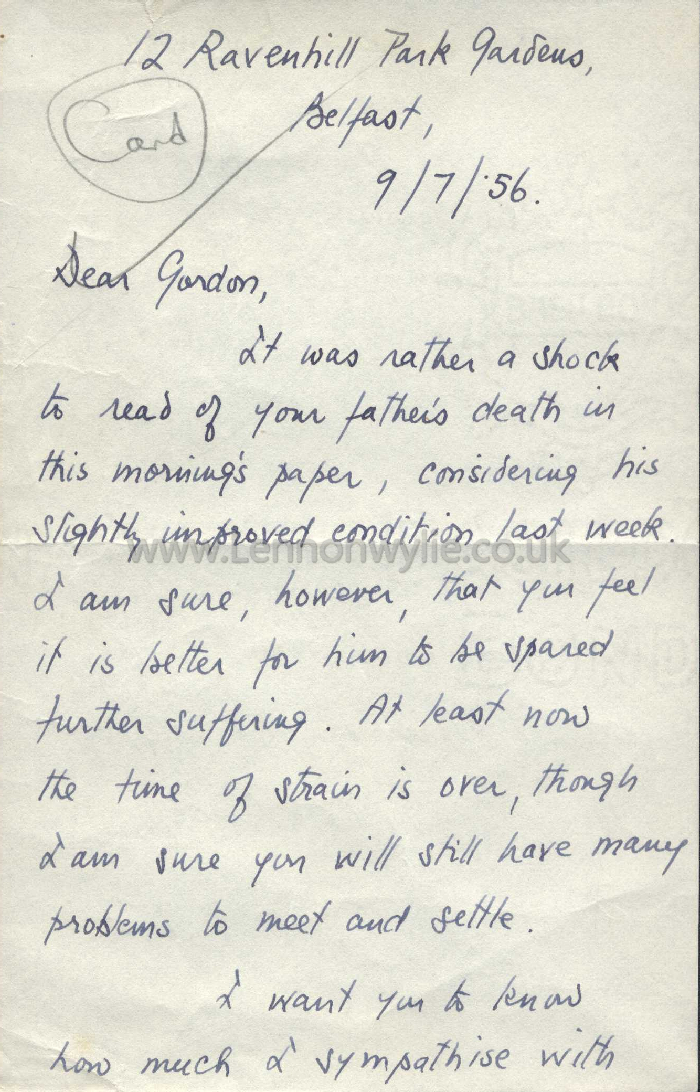 12 Ravenhill Park Gardens,
Belfast,
Card
9/7/'56.
Dear Gordon,
It was rather a shock
to read of your father's death in
this morning's paper, considering his
slightly improved condition last week.
www.Lennonwylie.co.uk
I am sure, however, that you feel
it is better for him to be spared
further suffering. At least now
the time of strain is over, though
I am sure you will still have many
problems to meet and settle.
I want you to know
how much I sympathise with